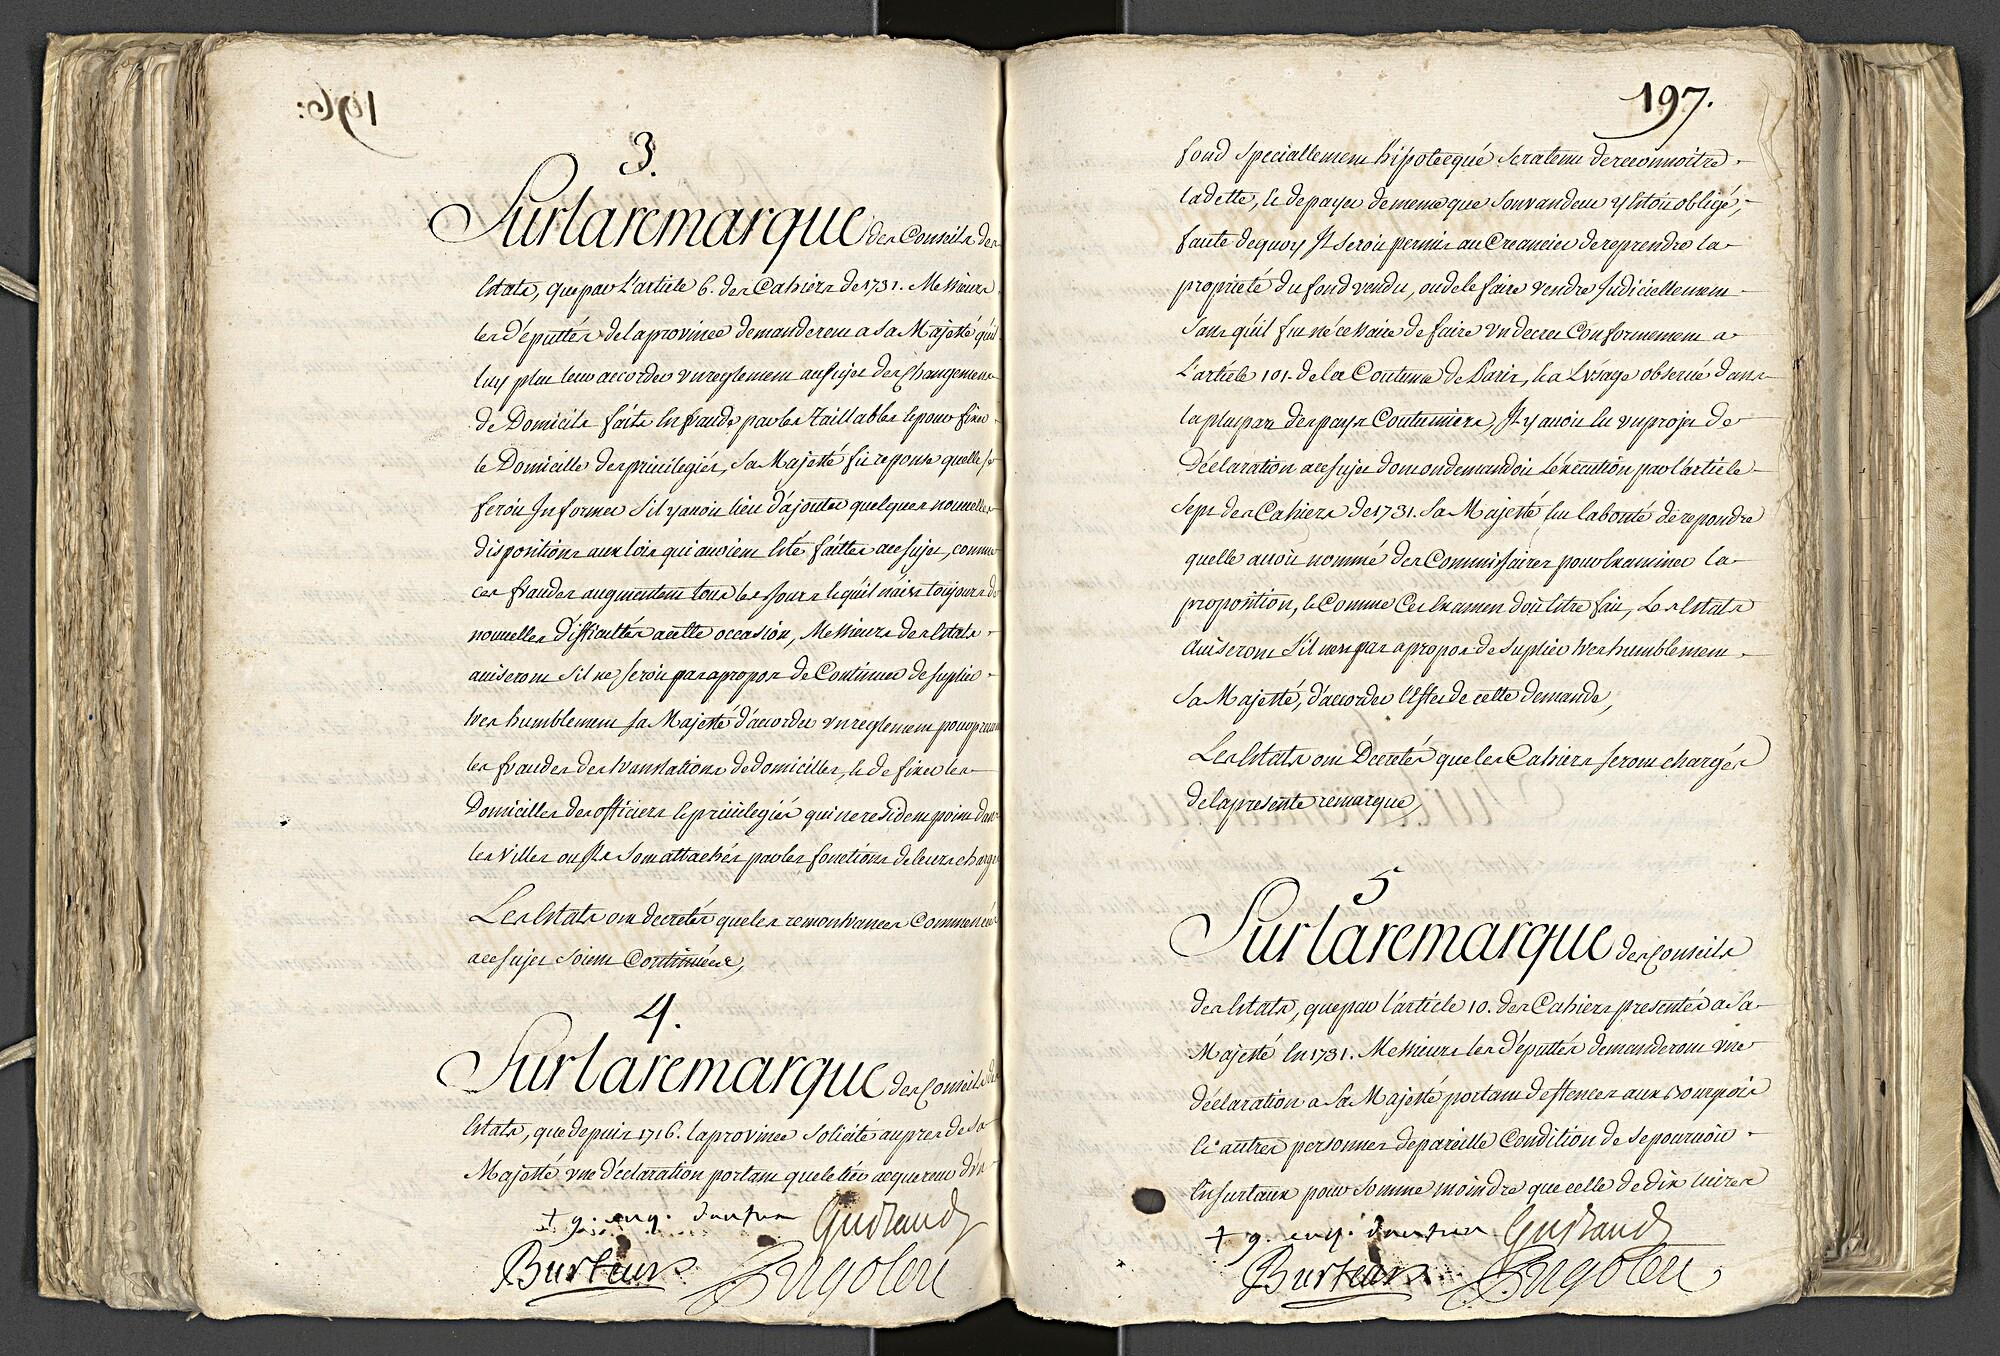 3.
Sur la remarque des Conseils des
Estats, que par L'article 6. des Cahiers de 1731. Messieurs
les Députtés de la province demanderent a Sa Majesté qu'il
luy plut leur accorder un reglement au sujet des Changemens
de Domicile faits en fraude par les Taillables et pour fixer
le Domicille des privilegiés, Sa Majesté fit reponse quelle se
feroit Informer s'il y avoit lieu d'ajouter quelques nouvelles
dispositions aux loix qui avoient été faittes a ce sujet, comme
ces fraudes augmentent tous les Jours et qu'il naist toujours de
nouvelles difficultés a cette occasion, Messieurs des Estats
aviseront s'il ne seroit pas a propos de Continuer de suplier
tres humblement sa Majesté d'accorder un reglement pour prevenir
les fraudes des translations de domicilles, et de fixer les
Domicilles des officiers et privilegiés qui ne resident point dans
les Villes ou Ils sont attachés par les fonctions de leurs charges
Les Estats ont decreté que les remontrances Commencées
a ce sujet soient Continuées,
4.
Sur la remarque des Conseils des
Estats, que depuis 1716. la province solicite aupres de Sa
Majesté une déclaration portant que le tiers acquereur d'un
+ g. evq. d'autun Guiraud
Burteur Rigoley
197.
fond speciallement hipotecqué sera tenu de reconnoitre
la dette, et de payer de meme que son vandeur y etoit obligé,
faute de quoy Il seroit permis au Creancier de reprendre la
propriété du fond vendu, ou de le faire vendre Judiciellement
sans qu'il fut nécessaire de faire un decret Conformement a
L'article 101. de la Coutume de Paris, et a L'usage observé dans
la pluspart des pays Coutumiers, Il y avoit eu un projet de
Déclaration a ce sujet dont on demandoit L'éxecution par l'article
sept des Cahiers de 1731. Sa Majesté eut la bonté de repondre
quelle avoit nommé des Commissaires pour Examiner la
proposition, et Comme Cet Examen doit etre fait, Les Estats
aviseront s'il n'est pas a propos de suplier tres humblement
Sa Majesté, d'accorder l'effet de cette demande,
Les Estats ont Decreté que les Cahiers seront chargés
de la presente remarque,
5
Sur la remarque des Conseils
des Estats, que par l'article 10. des Cahiers presentés a Sa
Majesté En 1731. Messieurs les Députtés demanderent une
déclaration a Sa Majesté portant deffences aux Bourgeois
et autres personnes de pareille Condition de se pourvoir
En surtaux pour somme moindre que celle de dix livres
+ g. evq. d'autun Guiraud
Burteur Rigoley